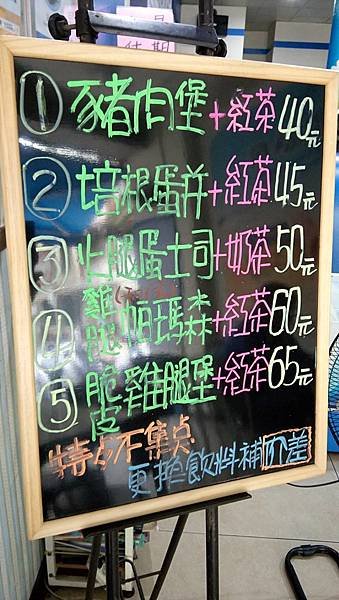 ①豬肉堡+紅茶40元
②培根蛋餅+紅茶45元
③火腿蛋土司+奶茶50元
④雞腿帕瑪森+紅茶60元
⑤脆皮雞腿堡+紅茶65元
特点不集点
更換飲料補价差